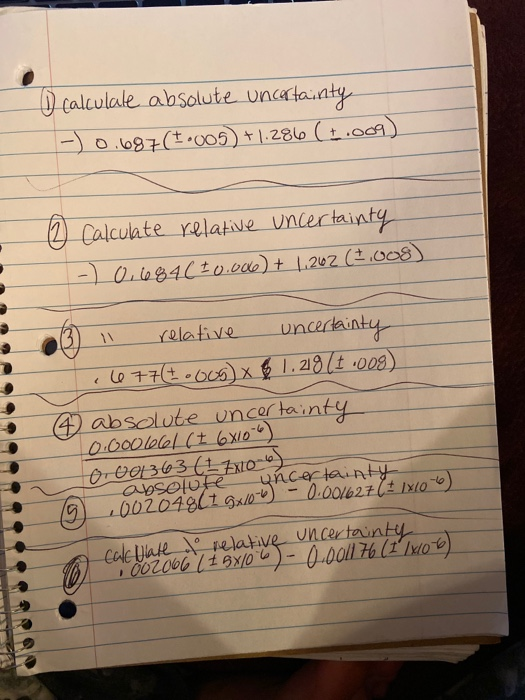 ① calculate absolute uncertainty
-) 0.687(±.005) + 1.286 (±.009)
② Calculate relative uncertainty
-) 0.684(±0.006) + 1.262 (±.008)
③ " relative uncertainty
.677(±.005) x 1.219(±.008)
④ absolute uncertainty
0.000661 (± 6x10⁻⁶)
0.001363 (± 7x10⁻⁶)
absolute uncertainty
⑤ .002048(± 9x10⁻⁶) - 0.001627(± 1x10⁻⁶)
calculate % relative uncertainty
⑥ .002066 (± 5x10⁻⁶) - 0.001176 (± 1x10⁻⁶)